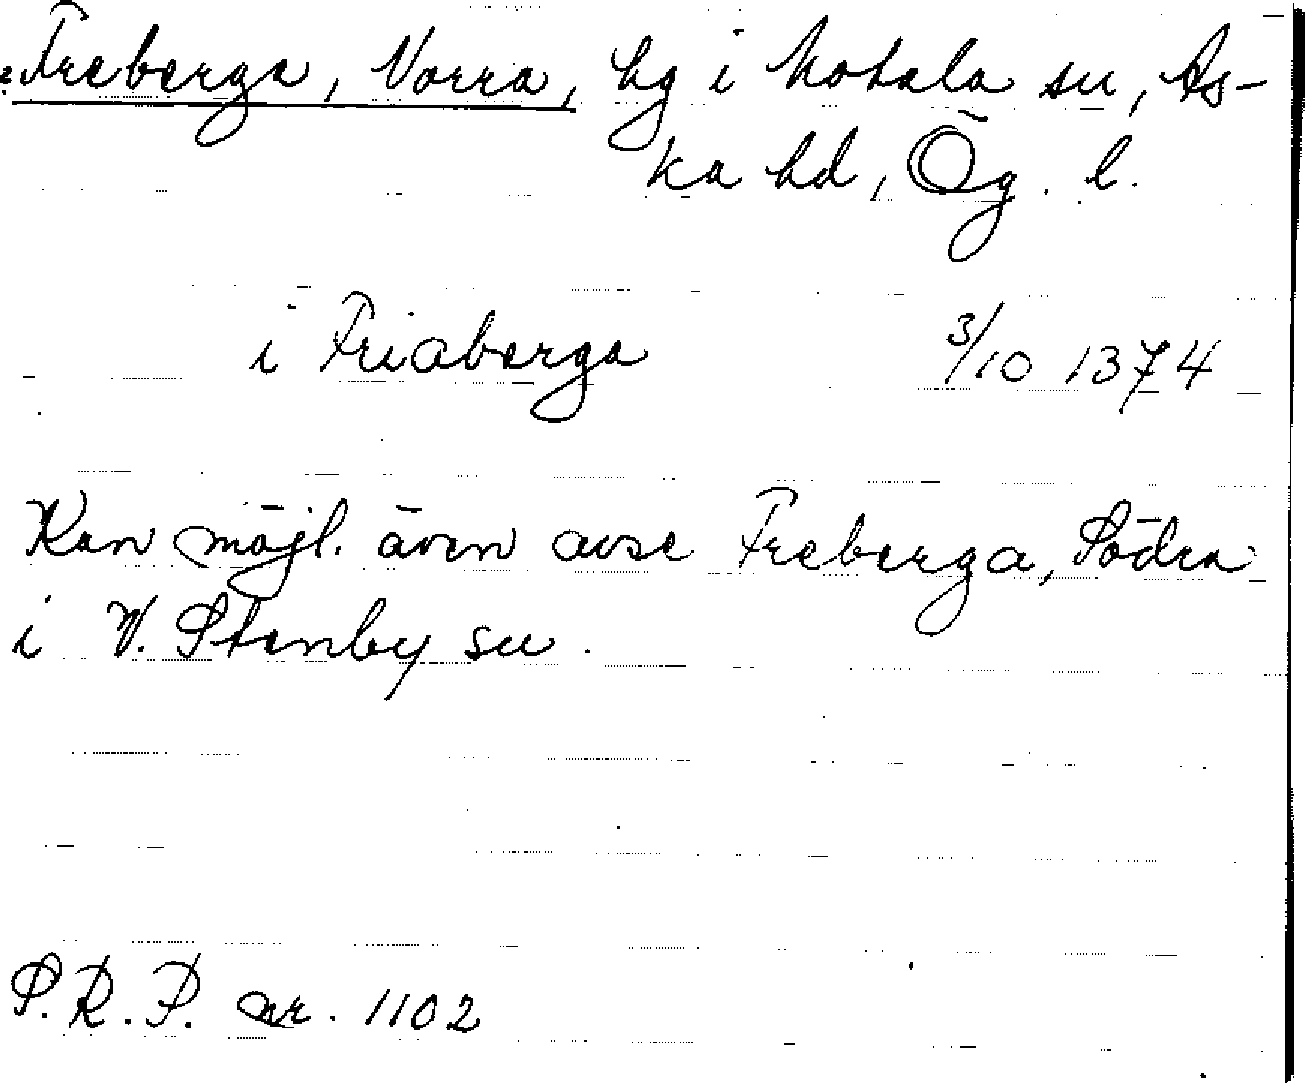 Freberga, Norra, hg i Motala sn, As-
ka hd, Ög. l.
i Friaberga 3/10 1374
Kan möjl. även avse Freberga, Södra
i V. Stenby sn.
S.R.P. nr. 1102